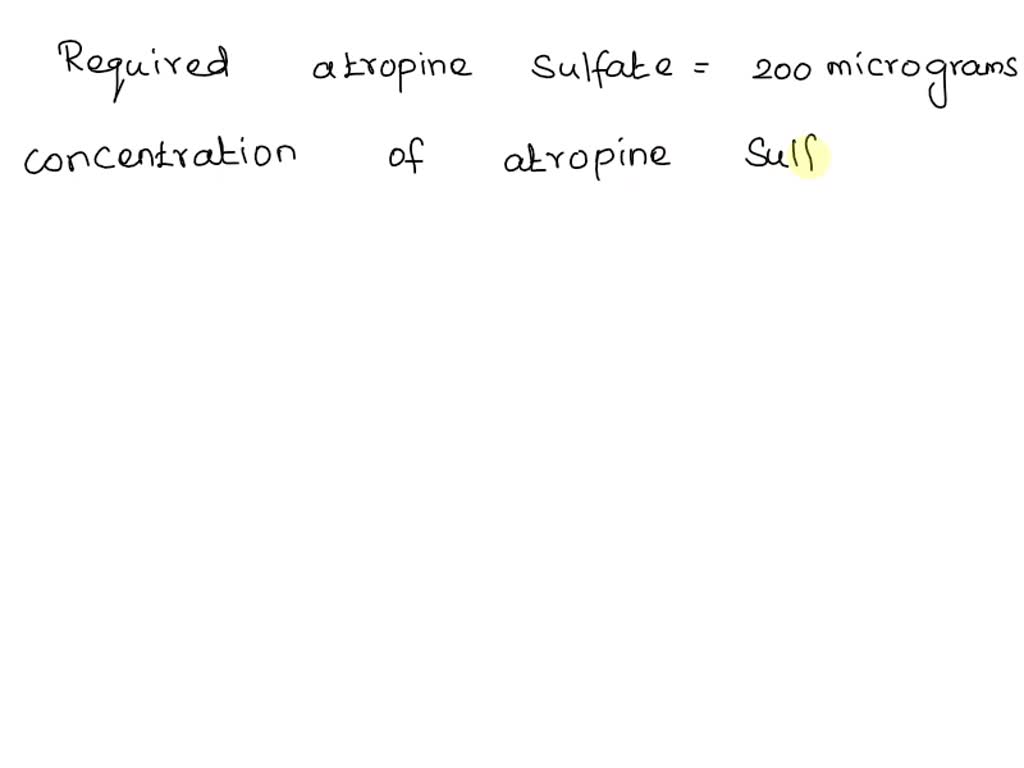 Required atropine sulfate = 200 micrograms
concentration of atropine Sulf